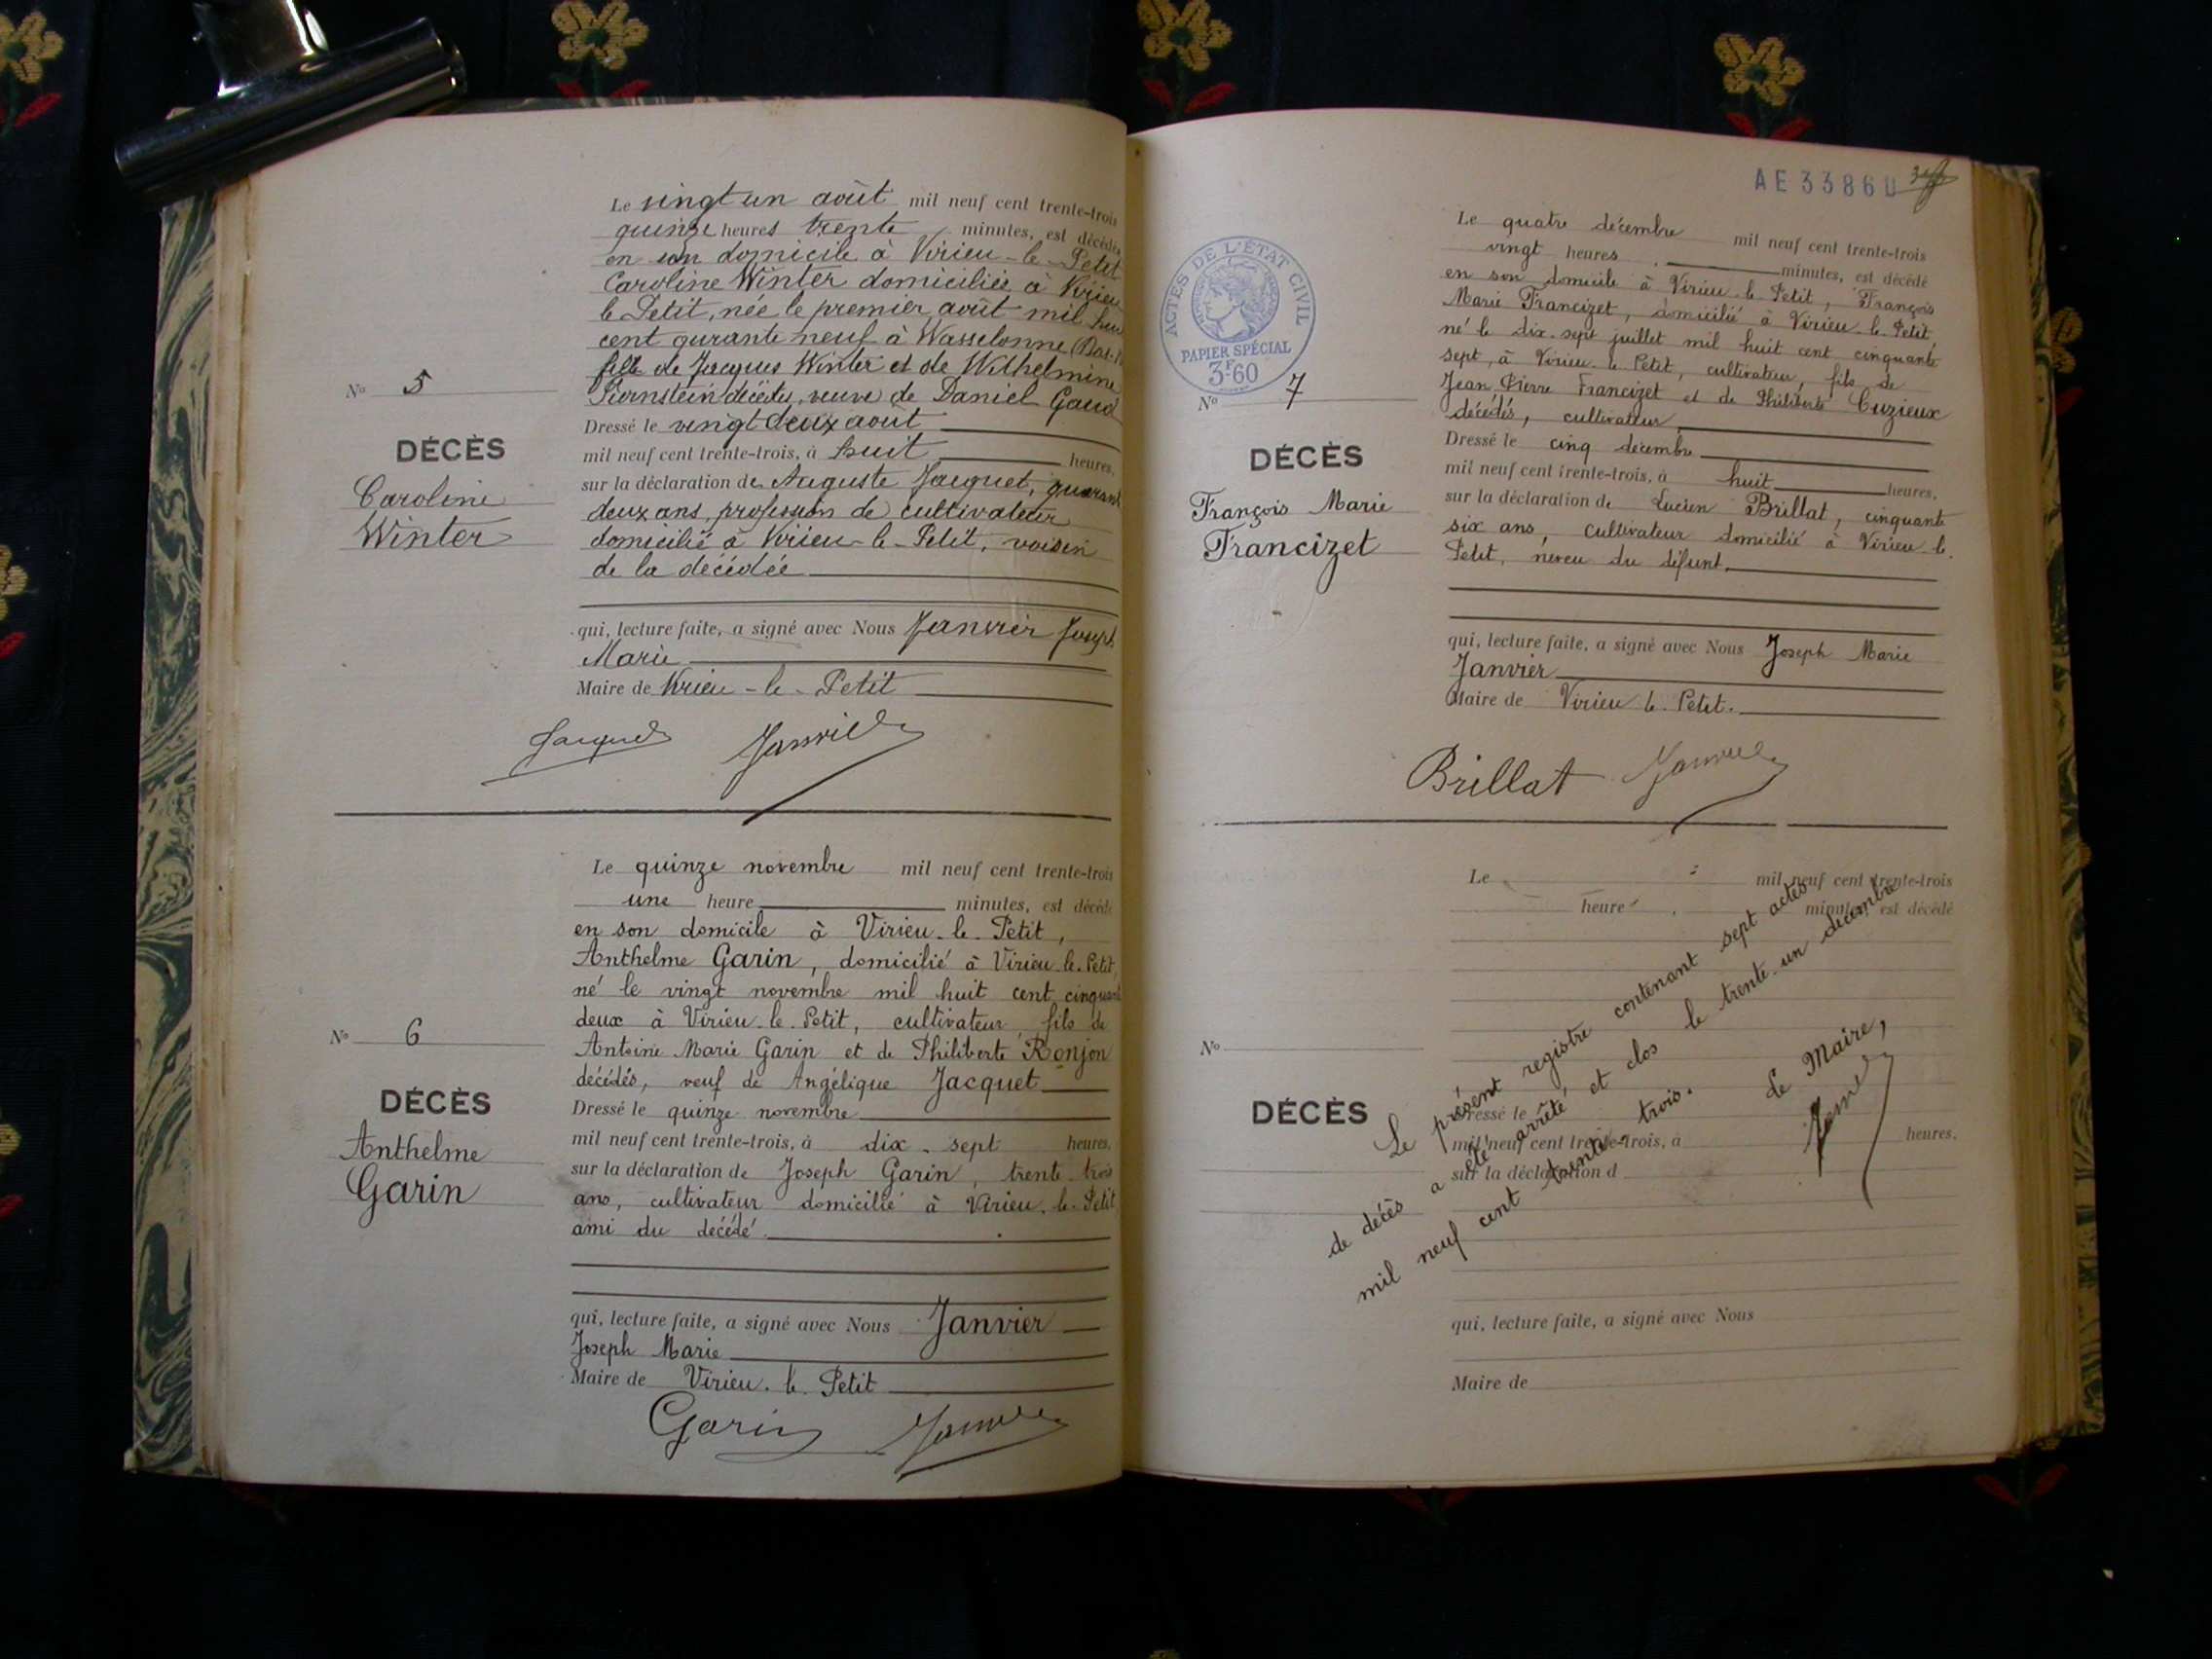 Le vingt un août mil neuf cent trente-trois
quinze heures trente minutes, est décédée
en son domicile à Virieu-le-Petit
Caroline Winter domiciliée à Virieu
le Petit, née le premier août mil huit
cent quarante neuf à Wasselonne (Bas-
fille de Jacques Winter et de Wilhelmine
décédés, veuve de Daniel
Dressé le vingt deux août
mil neuf cent trente-trois, à huit heures.
sur la déclaration de Auguste Jacquet, quarant
deux ans, profession de cultivateur
domicilié à Virieu-le-Petit, voisin
de la décédée
qui, lecture faite, a signé avec Nous Janvier Joseph
Marie
Maire de Virieu-le-Petit
Jacquet Janvier
No 5
DÉCÈS
Caroline
Winter
Le quinze novembre mil neuf cent trente-trois
une heure minutes, est décédé
en son domicile à Virieu-le-Petit,
Anthelme Garin, domicilié à Virieu-le-Petit
né le vingt novembre mil huit cent cinquant
deux à Virieu-le-Petit, cultivateur, fils de
Antoine Marie Garin et de Philiberte Ronjon
décédés, veuf de Angélique Jacquet
Dressé le quinze novembre
mil neuf cent trente-trois, à dix-sept heures.
sur la déclaration de Joseph Garin, trente trois
ans, cultivateur domicilié à Virieu-le-Petit
ami du décédé.
qui, lecture faite, a signé avec Nous Janvier
Joseph Marie
Maire de Virieu-le-Petit
Garin Janvier
No 6
DÉCÈS
Anthelme
Garin
AE 33860
ACTES DE L'ÉTAT CIVIL
PAPIER SPÉCIAL
3F60
Le quatre décembre mil neuf cent trente-trois
vingt heures minutes, est décédé
en son domicile à Virieu-le-Petit, François
Marie Francizet, domicilié à Virieu-le-Petit,
né le dix-sept juillet mil huit cent cinquante
sept, à Virieu-le-Petit, cultivateur, fils de
Jean Pierre Francizet et de Philiberte Cuzieux
décédés, cultivateur
Dressé le cinq décembre
mil neuf cent trente-trois, à huit heures.
sur la déclaration de Lucien Brillat, cinquante
six ans, cultivateur domicilié à Virieu-le-
Petit, neveu du défunt.
qui, lecture faite, a signé avec Nous Joseph Marie
Janvier
Maire de Virieu-le-Petit.
Brillat Janvier
No 7
DÉCÈS
François Marie
Francizet
Le mil neuf cent trente-trois
heure minutes, est décédé
No
DÉCÈS
Dressé le
mil neuf cent trente-trois, à heures.
sur la déclaration d
qui, lecture faite, a signé avec Nous
Maire de
Le présent registre contenant sept actes
de décès a été arrêté et clos le trente-un décembre
mil neuf cent trente-trois.
Le Maire,
Janvier